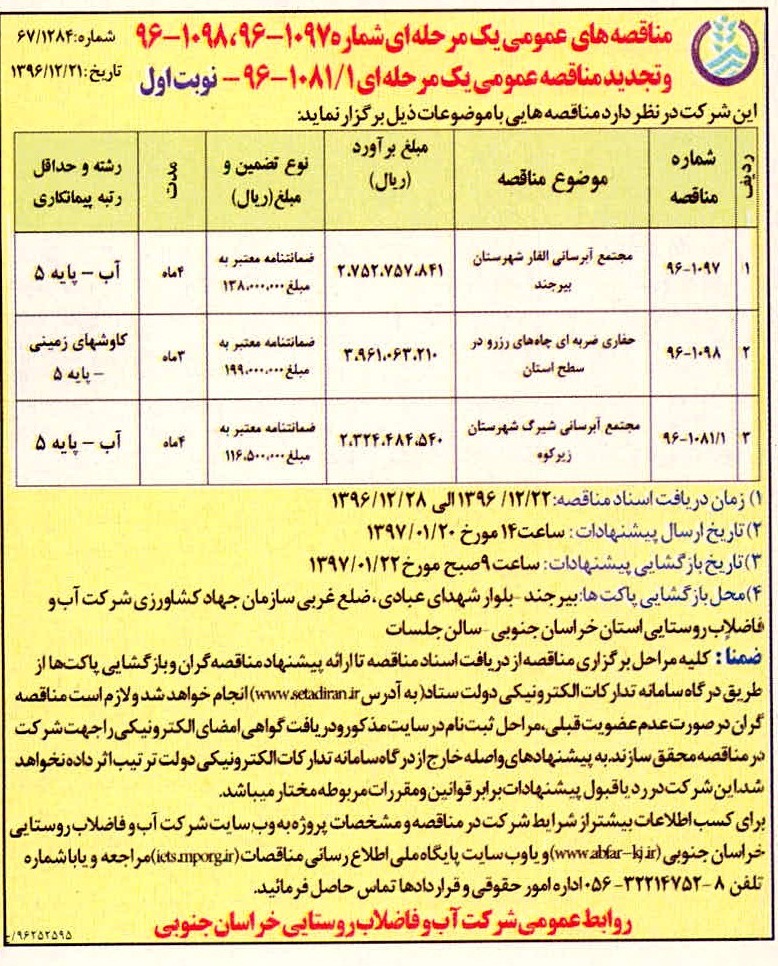 مناقصه های عمومی یک مرحله ای شماره ۱۰۹۷-۹۶، ۱۰۹۸-۹۶
شماره: ۶۷/۱۲۸۴
و تجدید مناقصه عمومی یک مرحله ای ۱۰۸۱/۱-۹۶ - نوبت اول
تاریخ: ۱۳۹۶/۱۲/۲۱
این شرکت در نظر دارد مناقصه هایی با موضوعات ذیل برگزار نماید:
ردیف | شماره مناقصه | موضوع مناقصه | مبلغ برآورد (ریال) | نوع تضمین و مبلغ (ریال) | مدت | رشته و حداقل رتبه پیمانکاری
۱ | ۹۶-۱۰۹۷ | مجتمع آبرسانی الغار شهرستان بیرجند | ۲،۷۵۲،۷۵۷،۸۴۱ | ضمانتنامه معتبر به مبلغ ۱۳۸،۰۰۰،۰۰۰ | ۴ماه | آب - پایه ۵
۲ | ۹۶-۱۰۹۸ | حفاری ضربه ای چاه‌های رزرو در سطح استان | ۳،۹۶۱،۰۶۳،۲۱۰ | ضمانتنامه معتبر به مبلغ ۱۹۹،۰۰۰،۰۰۰ | ۳ماه | کاوشهای زمینی - پایه ۵
۳ | ۹۶-۱۰۸۱/۱ | مجتمع آبرسانی شیرگ شهرستان زیرکوه | ۲،۳۲۴،۴۸۴،۵۴۰ | ضمانتنامه معتبر به مبلغ ۱۱۶،۵۰۰،۰۰۰ | ۴ماه | آب - پایه ۵
۱) زمان دریافت اسناد مناقصه: ۱۳۹۶/۱۲/۲۲ الی ۱۳۹۶/۱۲/۲۸
۲) تاریخ ارسال پیشنهادات: ساعت ۱۴ مورخ ۱۳۹۷/۰۱/۲۰
۳) تاریخ بازگشایی پیشنهادات: ساعت ۹ صبح مورخ ۱۳۹۷/۰۱/۲۲
۴) محل بازگشایی پاکت ها: بیرجند - بلوار شهدای عبادی، ضلع غربی سازمان جهاد کشاورزی شرکت آب و
فاضلاب روستایی استان خراسان جنوبی - سالن جلسات
ضمنا: کلیه مراحل برگزاری مناقصه از دریافت اسناد مناقصه تا ارائه پیشنهاد مناقصه گران و بازگشایی پاکت‌ها از
طریق درگاه سامانه تدارکات الکترونیکی دولت ستاد (به آدرس www.setadiran.ir) انجام خواهد شد و لازم است مناقصه
گران در صورت عدم عضویت قبلی، مراحل ثبت نام در سایت مذکور و دریافت گواهی امضای الکترونیکی را جهت شرکت
در مناقصه محقق سازند. به پیشنهادهای واصله خارج از درگاه سامانه تدارکات الکترونیکی دولت ترتیب اثر داده نخواهد
شد. این شرکت در رد یا قبول پیشنهادات برابر قوانین و مقررات مربوطه مختار میباشد.
برای کسب اطلاعات بیشتر از شرایط شرکت در مناقصه و مشخصات پروژه به وب سایت شرکت آب و فاضلاب روستایی
خراسان جنوبی (www.abfar-kj.ir) و یا وب سایت پایگاه ملی اطلاع رسانی مناقصات (icts.mporg.ir) مراجعه و یا با شماره
تلفن ۸ - ۳۲۲۱۴۷۵۲-۰۵۶ اداره امور حقوقی و قراردادها تماس حاصل فرمائید.
روابط عمومی شرکت آب و فاضلاب روستایی خراسان جنوبی
۹۶۲۵۲۵۹۵/